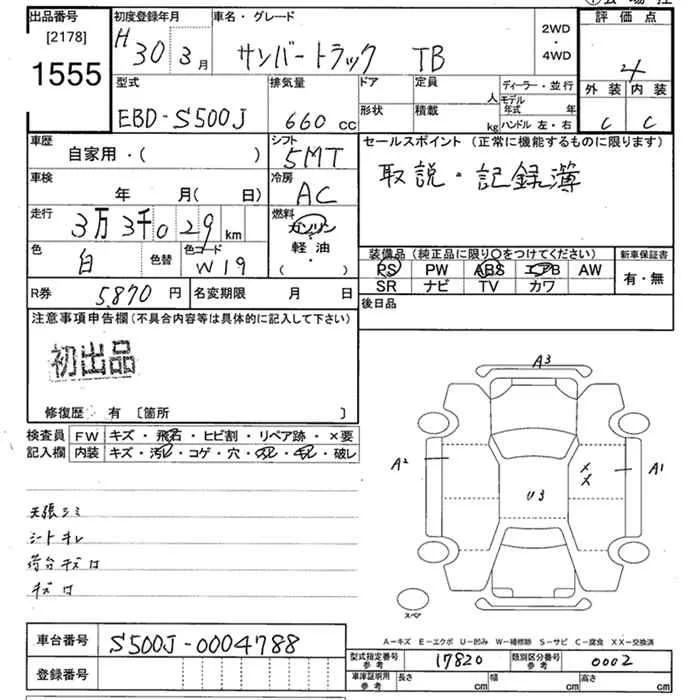 出品番号
[2178]
1555
初度登録年月
H30 3月
車名・グレード
サンバートラック TB
2WD
・
4WD
評価点
4
外装 内装
C C
型式
EBD-S500J
排気量
660 cc
ドア
形状
定員
人
積載
kg
ディーラー・並行
モデル年式 年
ハンドル 左・右
車歴
自家用・( )
シフト
5MT
セールスポイント(正常に機能するものに限ります)
取説・記録簿
車検
年 月(日)
冷房
AC
走行
3万3千029km
燃料
ガソリン
軽・油
・
( )
色
白
色替
色コード
W19
装備品(純正品に限り○をつけてください)
PS PW ABS エアB AW
SR ナビ TV カワ
新車保証書
有・無
R券
5,870円
名変期限 月 日
後日品
注意事項申告欄(不具合内容等は具体的に記入して下さい)
初出品
修復歴・有〔箇所 〕
検査員記入欄
FW キズ・飛石・ヒビ割・リペア跡・×要
内装 キズ・汚レ・コゲ・穴・スレ・キレ・破レ
天張シミ
シートキレ
荷台キズ凹
キズ凹
A3
A2
A1
U3
X
X
スペア
A-キズ E-エクボ U-凹み W-補修跡 S-サビ C-腐食 XX-交換済
車台番号
S500J-0004788
登録番号
型式指定番号
参考
17820
類別区分番号
参考
0002
車庫証明用
参考
長さ cm
幅 cm
高さ cm